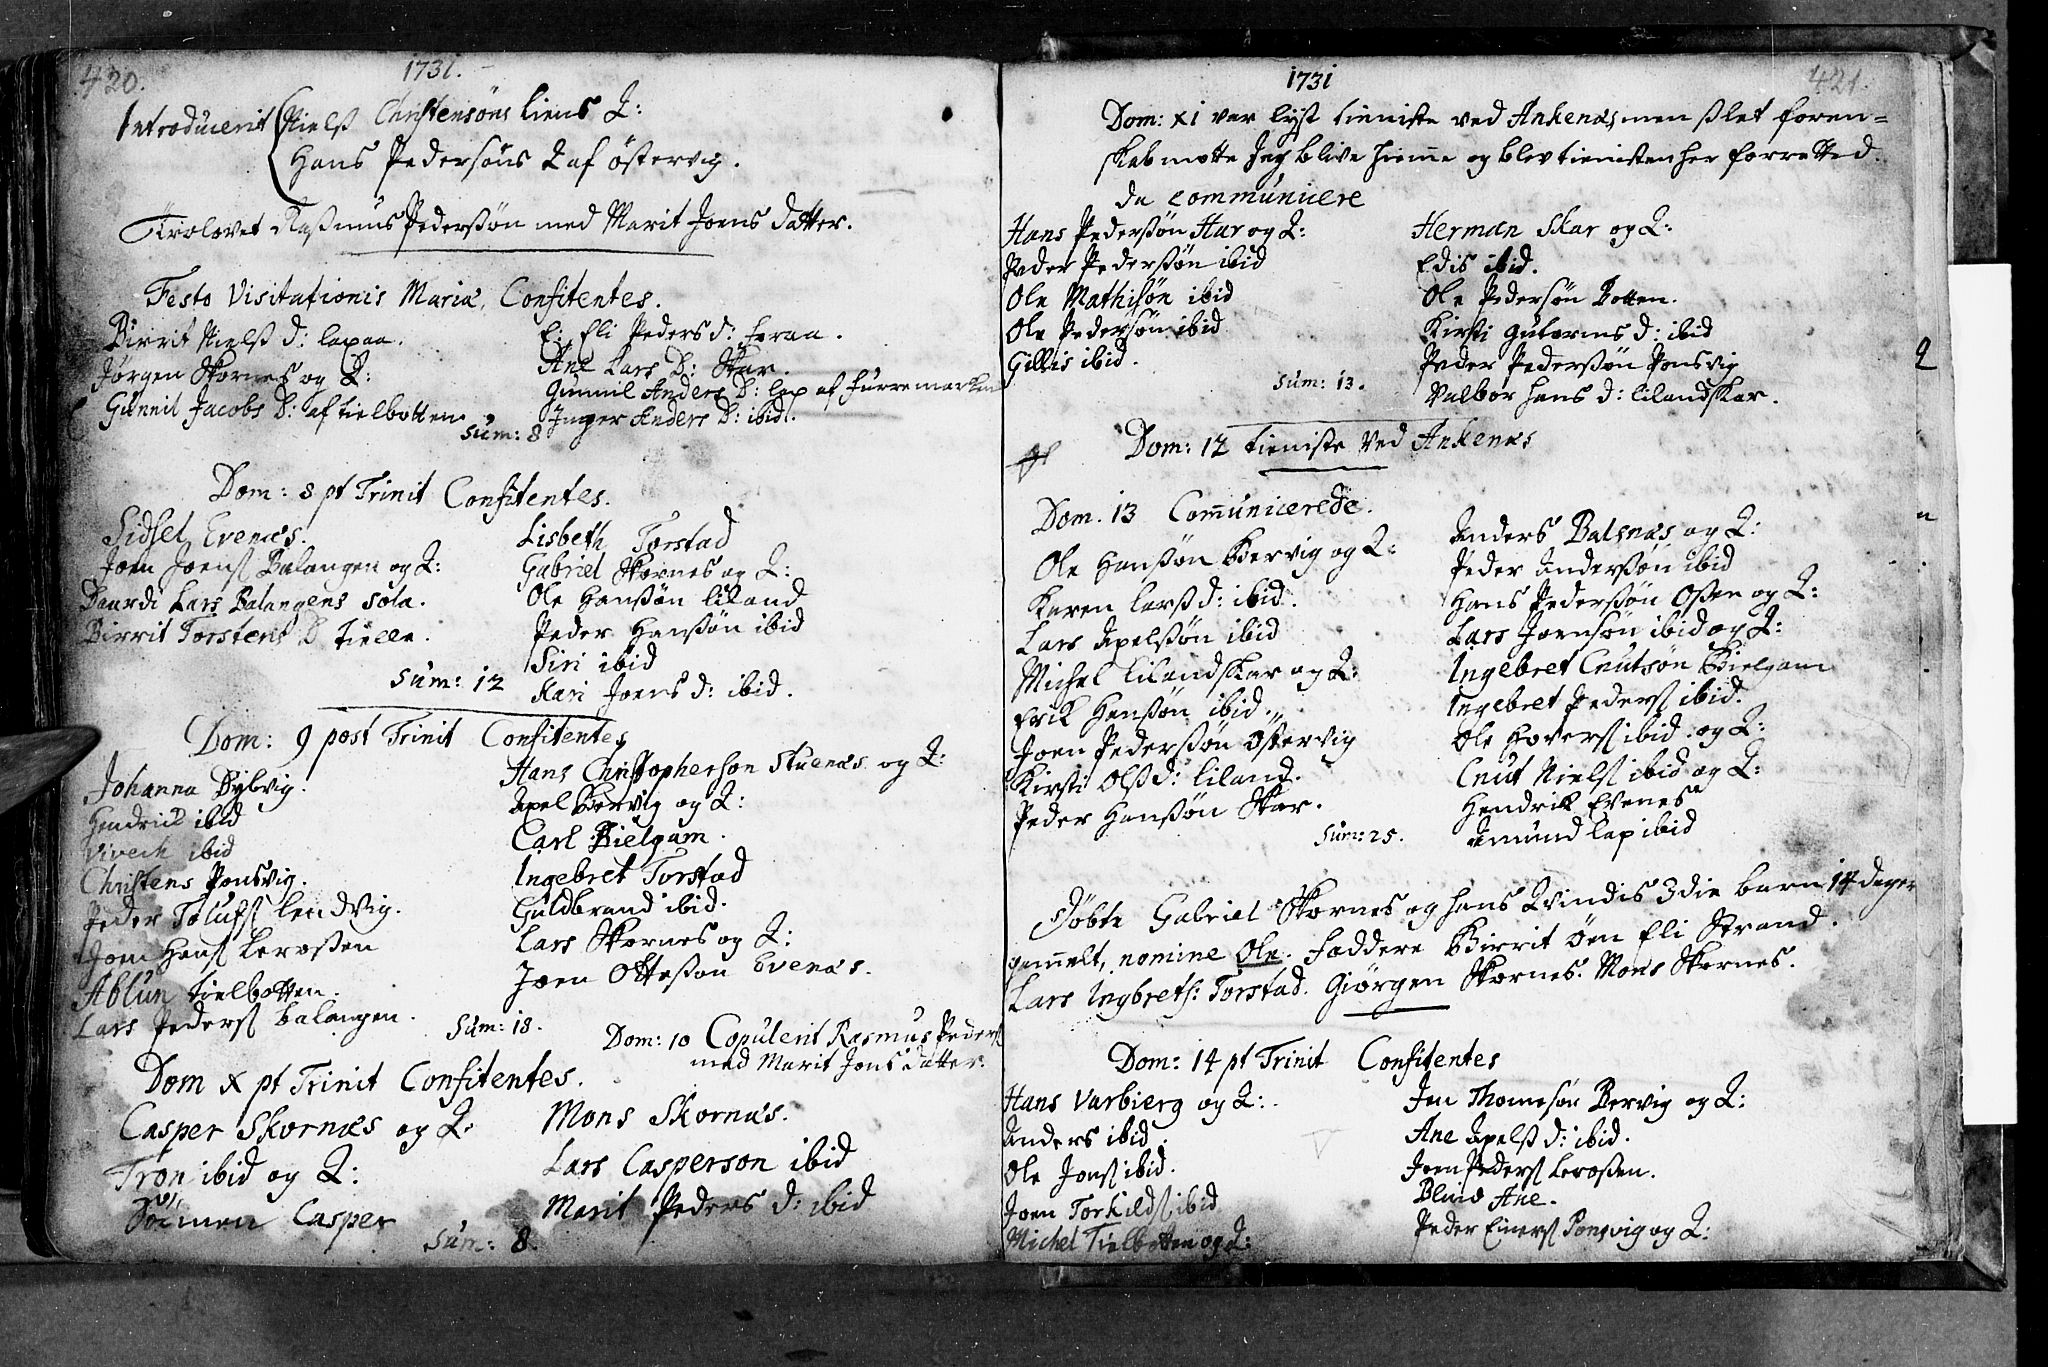 420.
1731.
Introducerit Nielß Christensöns Liens Q:
Hans Pedersöns Q af östervig.
Trolovet Raßmus Pederßön med Marit Joens datter.
Festo Visitationis Mariæ, Confitentes.
Birrit Nielß d: lapaa.
Jörgen Skornes og Q:
Gunnil Jacobs D: af tielbotten
E: Eli Peders d: foraa.
Ane Lars D: Skar.
Gunnil Anders D: lap af furremarken
Inger Anders D: ibid.
Sum: 8
Dom: 8 pt Trinit Confitentes.
Sidsel Evenæs.
Joen Joens Balangen og Q:
Lars Balangens sola.
Birrit Torstens D tielle.
Lisbeth Torstad
Gabriel Skornes og Q:
Ole Hanßön liland
Peder Hanßön ibid
Siri ibid
Kari Joens d: ibid.
Sum: 12
Dom: 9 post Trinit Confitentes
Johanna Dybvig.
Hendrick ibid
Vivech ibid
Christens Ponsvig.
Peder Tolufs lendvig.
Joen Hans leroßen
Ablun tielbotten.
Lars Peders balangen.
Hans Christopherson Stuenæs og Q:
Apel Bervig og Q:
Carl Bielgam.
Ingebret Torstad
Guldbrand ibid.
Lars Skornes og Q:
Joen Otteson Evenæs.
Sum: 18.
Dom: 10 Copulerit Rasmus Peders
med Marit Jons datter.
Dom x pt Trinit Confitentes.
Casper Skornæs og Q:
Tron ibid og Q:
Casper
Mons Skornæs.
Lars Casperson ibid
Marit Peders d: ibid
Sum: 8.
1731
421.
Dom: xi var lyst tieniste ved Ankenæs, men slet foren=
skab motte Jeg blive hieme og blev tienisten her forretted.
da communicere
Hans Pederßön Har og Q:
Peder Pederßön ibid
Ole Mathisön ibid
Ole Pedersön ibid
Gillis ibid.
Herman Skar og Q:
Edis ibid.
Ole Pedersön Botten.
Kirsti Gutorms d: ibid
Peder Pederßön Ponsvig
Valbor Hans d: lilandskar.
Sum: 13.
Dom: 12 tieniste ved Ankenæs
Dom. 13 Comunicerede.
Ole Hanßön Bervig og Q:
Karen larß d: ibid.
Lars Apelßön ibid
Michel Lilandskar og Q:
Erik Hanßön ibid.
Joen Pederßön östervig
Kirsti Olß d: liland.
Peder Hanßön Skar.
Anders Balsnæs og Q:
Peder Anderßön ibid
Hans Pederßön Oßen og Q:
Lars Joensön ibid og Q:
Ingebret Cnutsön Bielgam
Ingebret Peders ibid.
Ole Hovers ibid. og Q:
Cnut Niels ibid og Q:
Hendrik Evenes
Amund lap ibid
Sum: 25.
Döbte Gabriel Skornes og hans Qvindis 3die barn 14 dager
gamelt, nomine Ole. faddere Birrit öen Eli Strand.
Lars Ingbrets: Torstad. Giörgen Skornes. Mons Skornes.
Dom: 14 pt Trinit Confitentes
Hans Varbierg og Q:
Anders ibid.
Ole Jons ibid.
Joen Torkilds ibid
Michel Tielbotten og Q:
Jen Thomesön Bervig og Q:
Ane Apelß d: ibid.
Joen Peders leroßen.
Blind Ane.
Peder Einers Ponsvig og Q: